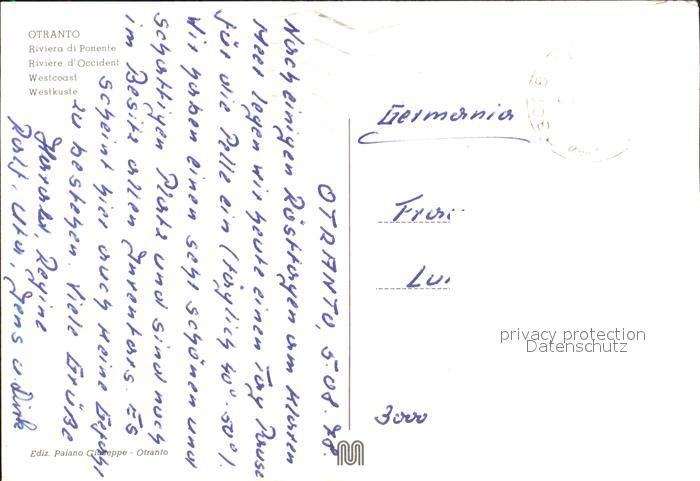 OTRANTO
Riviera di Ponente
Rivière d'Occident
Westcoast
Westküste
OTRANTO, 5.08.78.
Nach einigen Rösttagen am klaren
Meer legen wir heute einen Tag Pause
für die Pelle ein (täglich 40°-50°).
Wir haben einen sehr schönen und
schattigen Platz und sind noch
im Besitz allen Inventars. Es
scheint hier auch keine Gefahr
zu bestehen. Viele Grüße
Harald, Regine
Ralf, Uta, Jens u. Dirk
Germania
3000
privacy protection
Datenschutz
Ediz. Paiano Giuseppe - Otranto